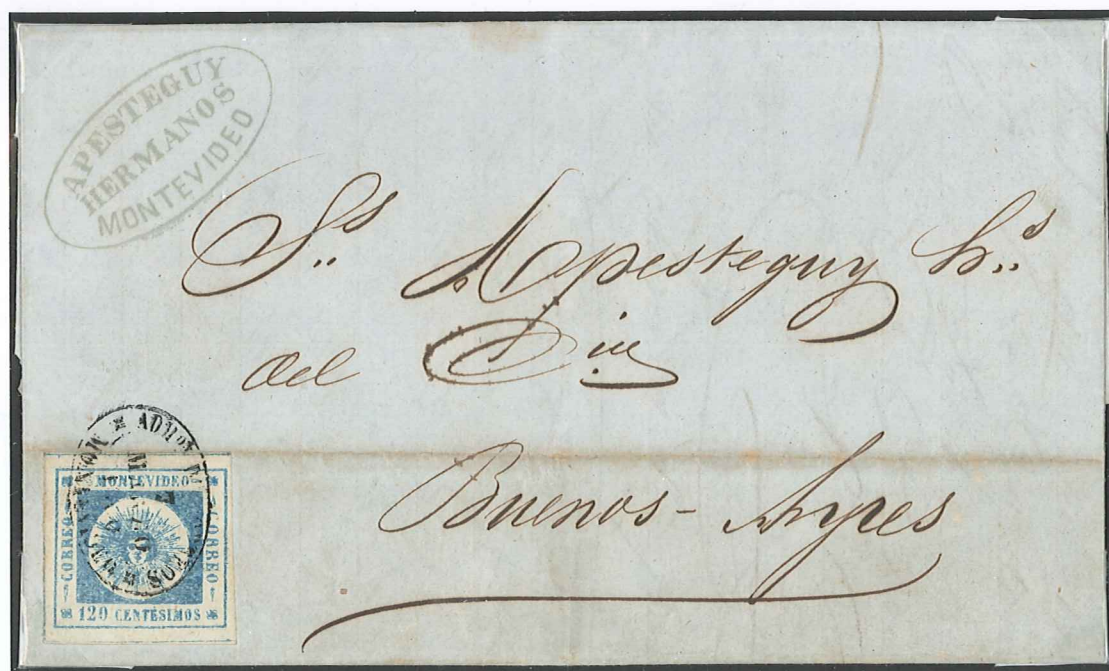 APESTEGUY
HERMANOS
MONTEVIDEO
Ss Apesteguy hs
del
Buenos-Ayres
MONTEVIDEO
CORREO
CORREO
120 CENTÉSIMOS